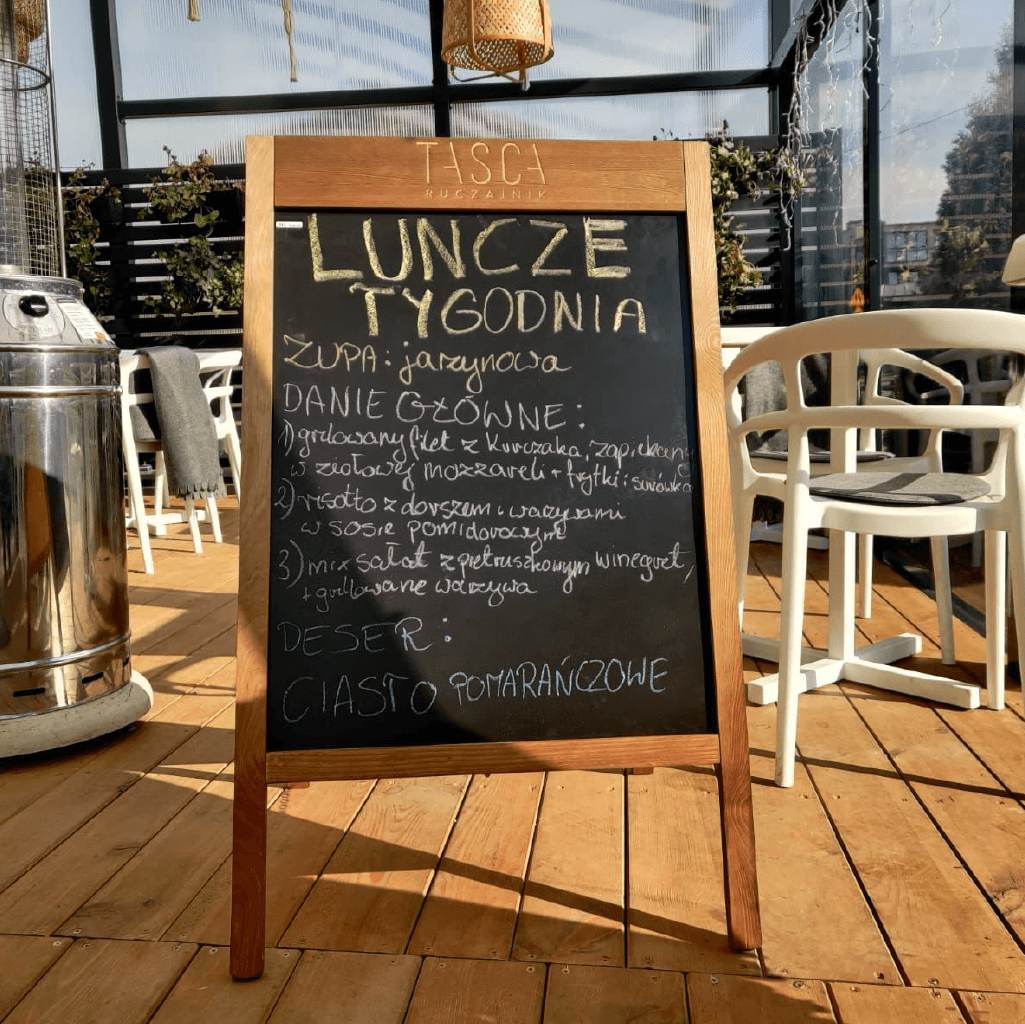 TASCA
RUCZAJNIK
LUNCZE
TYGODNIA
ZUPA: jarzynowa
DANIE GŁÓWNE:
1) grilowany filet z kurczaka, zapiekany
w ziołowej mozzareli + frytki i surówka
2) risotto z dorszem i warzywami
w sosie pomidorowym
3) mix sałat z pietruszkowym winegret,
+ grillowane warzywa
DESER:
CIASTO POMARAŃCZOWE